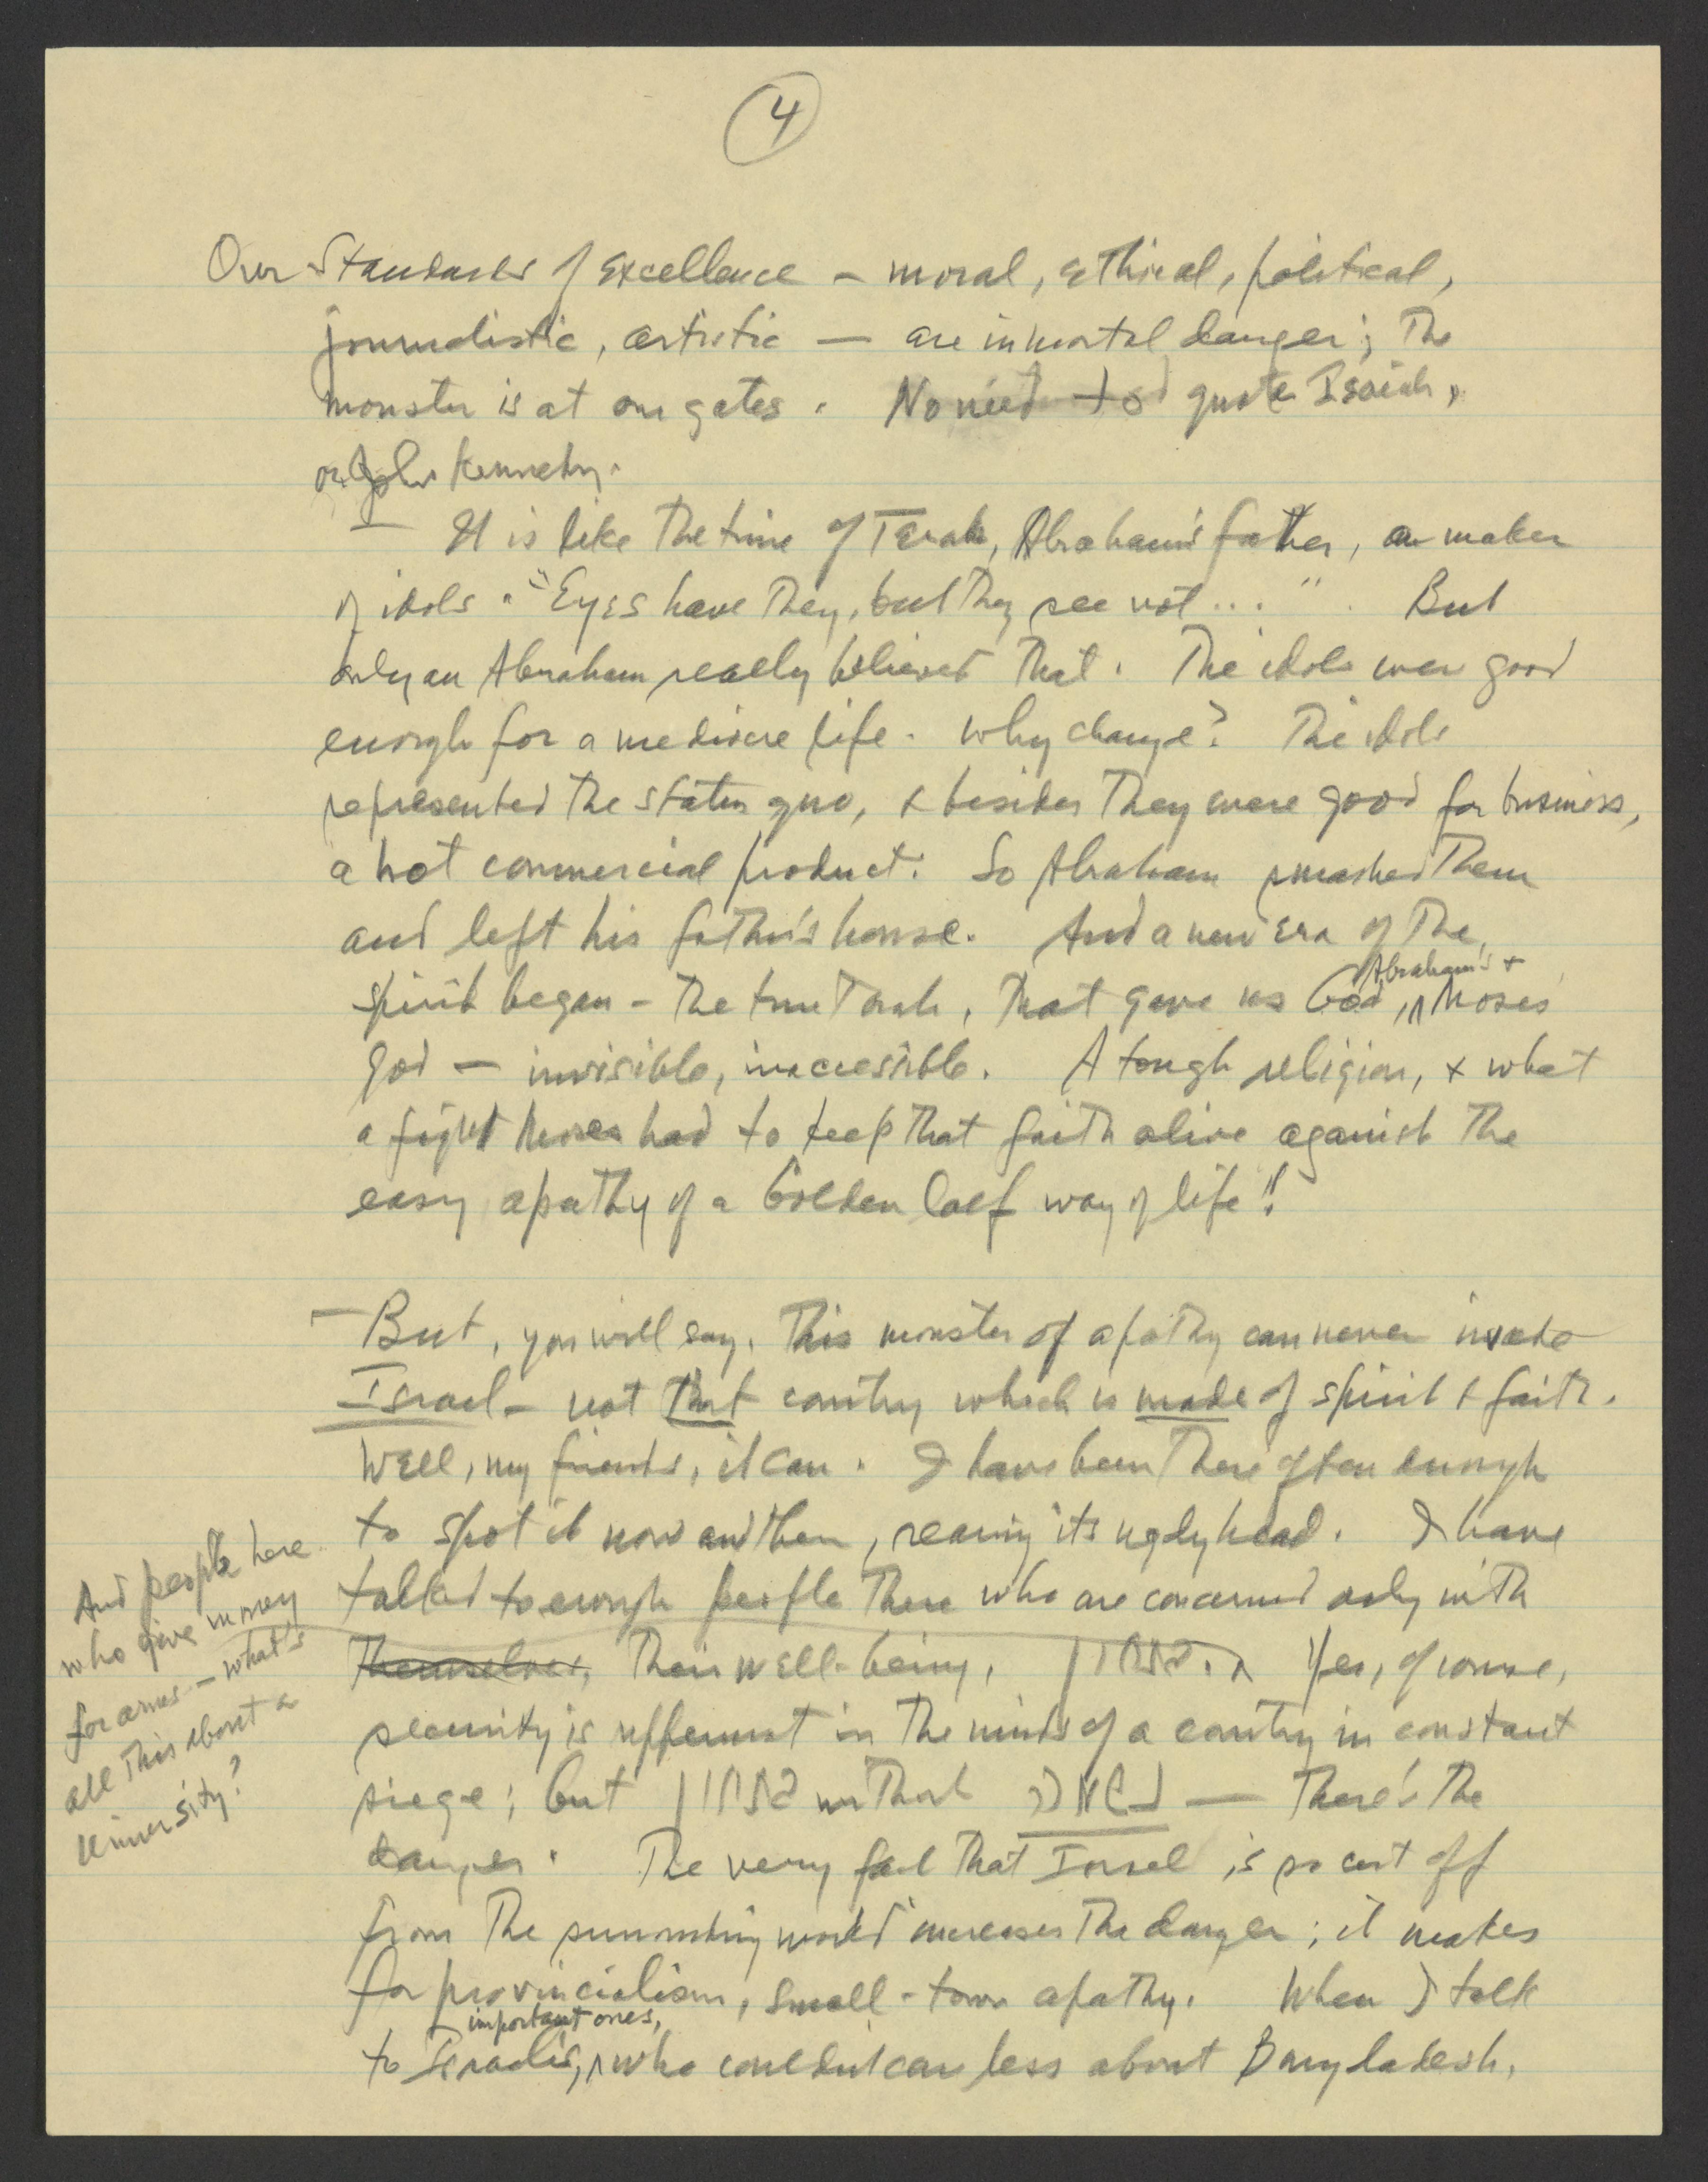 4
Our Standards of Excellence – moral, ethical, political,
journalistic, artistic — are in mortal danger; the
monster is at our gates. No need to quote Isaiah,
or John Kennedy.
— It is like the time of Terah, Abraham's father, a maker
of idols. "Eyes have they, but they see not...". But
only an Abraham really believed that. The idols were good
enough for a mediocre life. Why change? The idols
represented the status quo, & besides they were good for business,
a hot commercial product. So Abraham smashed them
and left his father's house. And a new era of the
spirit began – the true Torah, that gave us God, Abraham's + Moses'
God — invisible, inaccessible. A tough religion, + what
a fight Moses had to keep that faith alive against the
easy apathy of a Golden Calf way of life!!
— But, you will say, this monster of apathy can never invade
Israel – not that country which is made of spirit & faith.
Well, my friends, it can. I have been there often enough
to spot it now and then, rearing its ugly head. I have
talked to enough people there who are concerned only with
themselves, their well-being, בטחון. Yes, of course,
security is uppermost in the minds of a country in constant
siege; but בטחון without נשמה — there's the
danger. The very fact that Israel is so cut off
from the surrounding world increases the danger; it makes
for provincialism, small-town apathy. When I talk
to Israelis, important ones, who couldn't care less about Bangladesh,
And people here
who give money
for arms – what's
all this about a
University?